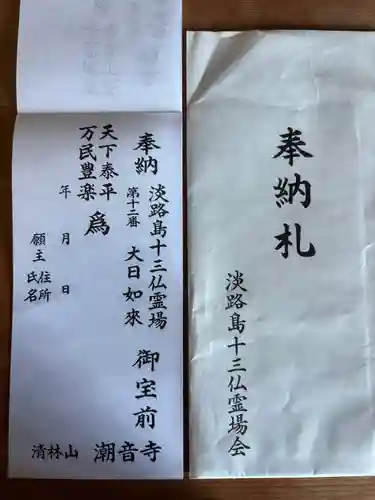 奉納
淡路島十三仏霊場
第十二番
大日如來
御宝前
天下泰平
万民豊楽
為
年 月 日
願主
住所
氏名
清林山 潮音寺
奉納札
淡路島十三仏霊場会